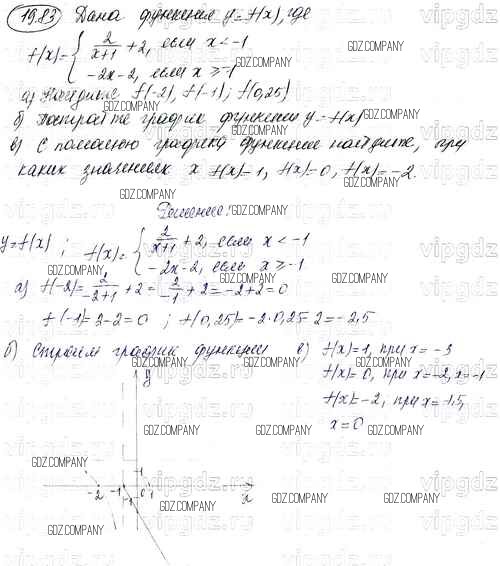 19.83 Дана функция y=f(x), где
f(x)= { 2/(x+1) + 2, если x < -1
-2x-2, если x ≥ -1
а) Найдите f(-2), f(-1); f(0,25)
б) Постройте график функции y=f(x)
в) С помощью графика функции найдите, при
каких значениях x f(x)=1, f(x)=0, f(x)=-2.
Решение:
y=f(x); f(x)= { 2/(x+1) + 2, если x < -1
-2x-2, если x ≥ -1
а) f(-2)= 2/(-2+1) + 2 = 2/(-1) + 2 = -2+2=0
f(-1)=2-2=0; f(0,25)=-2·0,25-2=-2,5
б) Строим график функции
в) f(x)=1, при x=-3
f(x)=0, при x=-2, x=-1
f(x)=-2, при x=-1,5,
x=0
y
1
-2 -1 0 1 x
-1
GDZ.COMPANY
vipgdz.ru